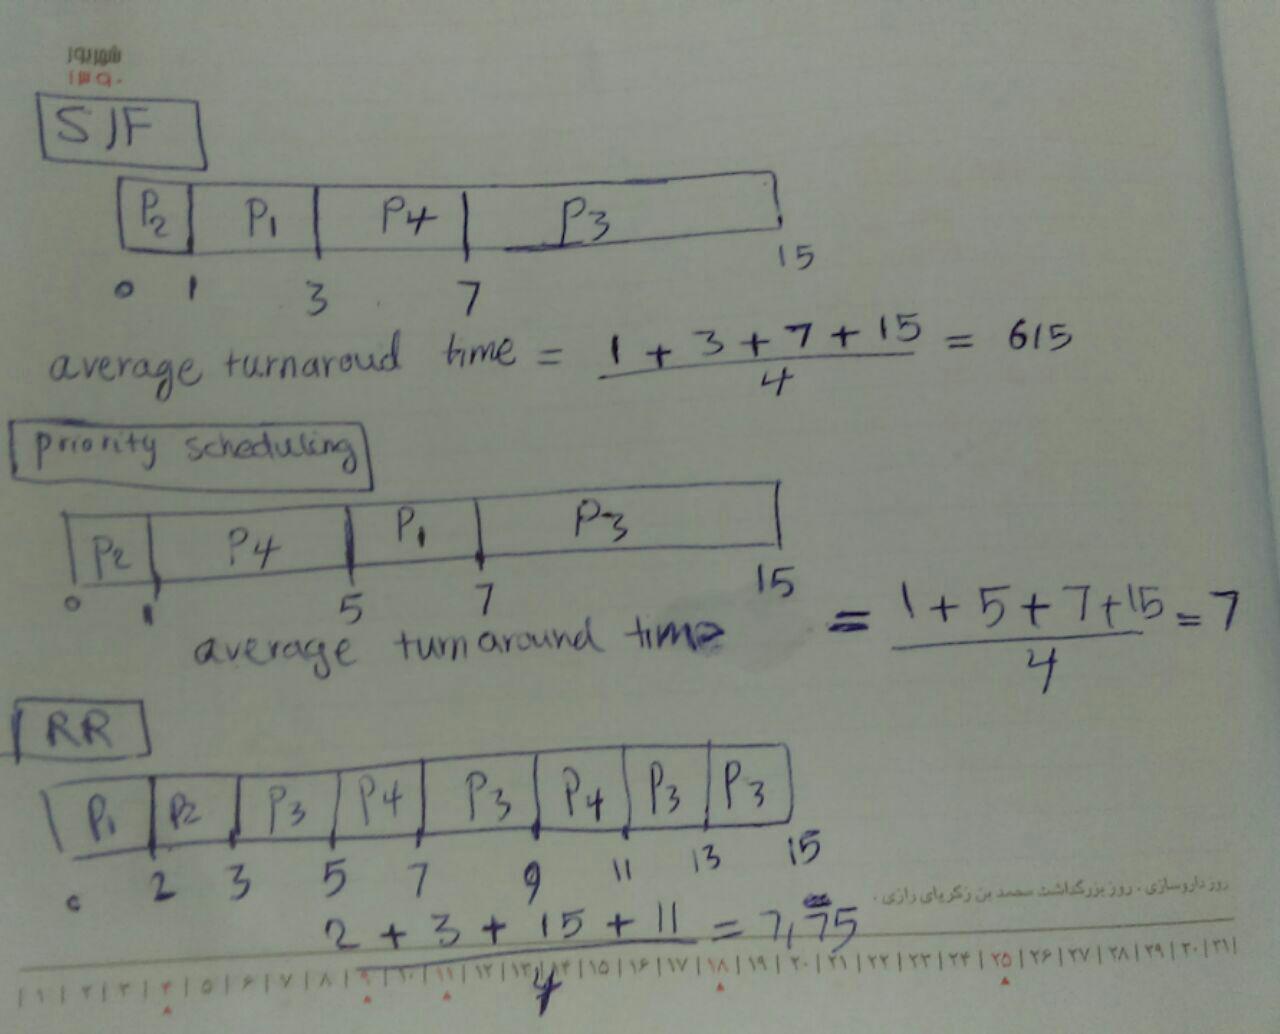 شهریور
۱۳۹۰
SJF
P2 P1 P4 P3
0 1 3 7 15
average turnaroud time = 1 + 3 + 7 + 15 / 4 = 6/5
priority scheduling
P2 P4 P1 P3
0 1 5 7 15
average turnaround time = 1 + 5 + 7 + 15 / 4 = 7
RR
P1 P2 P3 P4 P3 P4 P3 P3
0 2 3 5 7 9 11 13 15
روز داروسازی . روز بزرگداشت محمد بن زکریای رازی .
2 + 3 + 15 + 11 / 4 = 7,75
| ۱ | ۲ | ۳ | ۴ | ۵ | ۶ | ۷ | ۸ | ۹ | ۱۰ | ۱۱ | ۱۲ | ۱۳ | ۱۴ | ۱۵ | ۱۶ | ۱۷ | ۱۸ | ۱۹ | ۲۰ | ۲۱ | ۲۲ | ۲۳ | ۲۴ | ۲۵ | ۲۶ | ۲۷ | ۲۸ | ۲۹ | ۳۰ | ۳۱ |